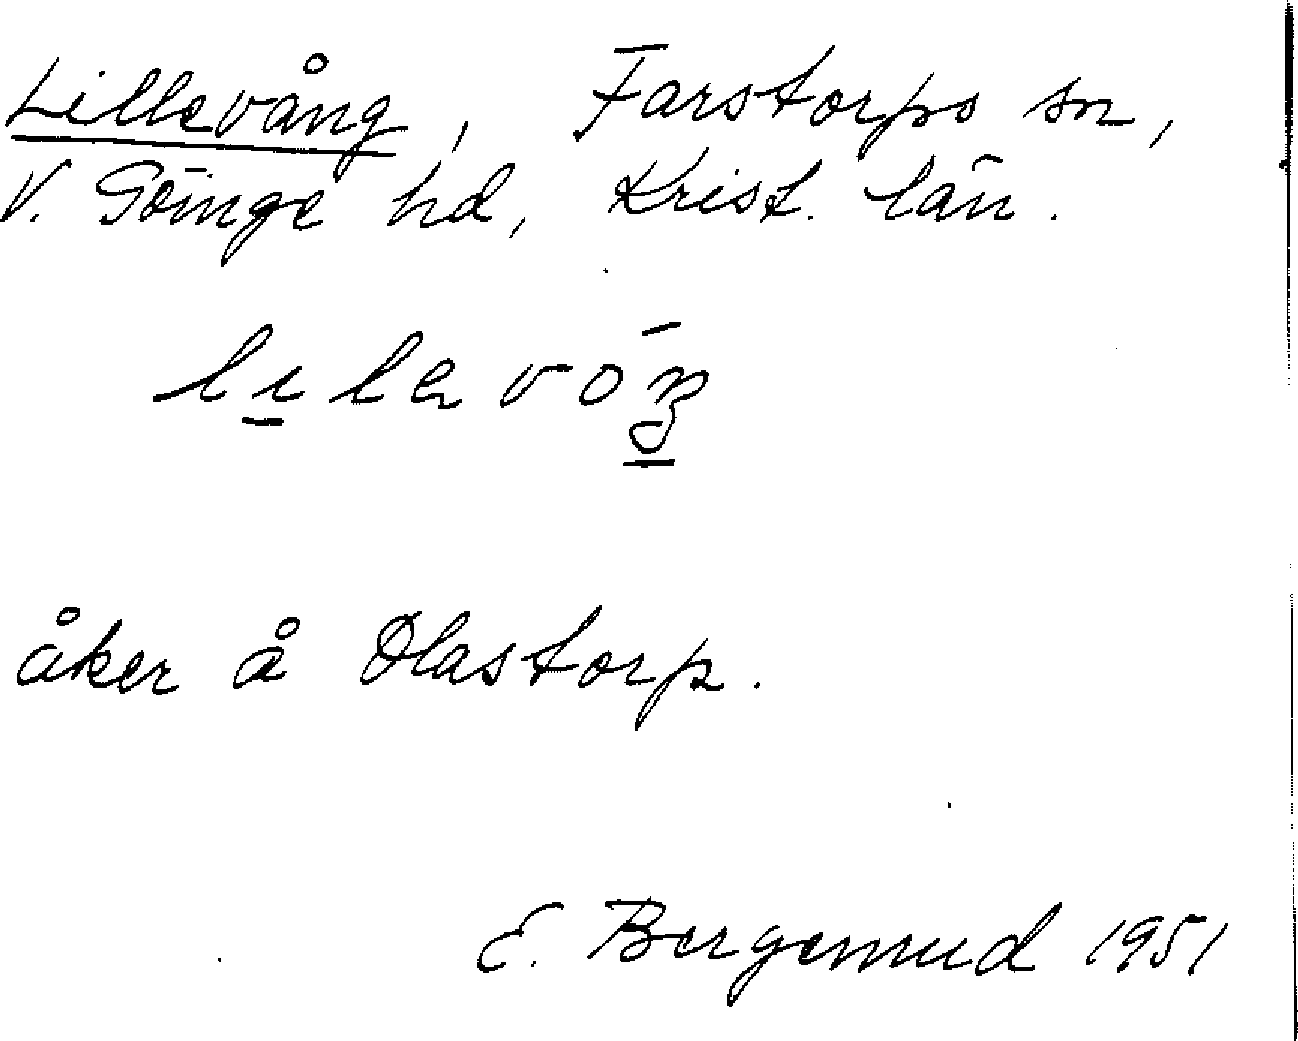 Lillevång, Farstorps sn,
V. Göinge hd, Krist. län.
åker å Olastorp.
E. Bergemrud 1951